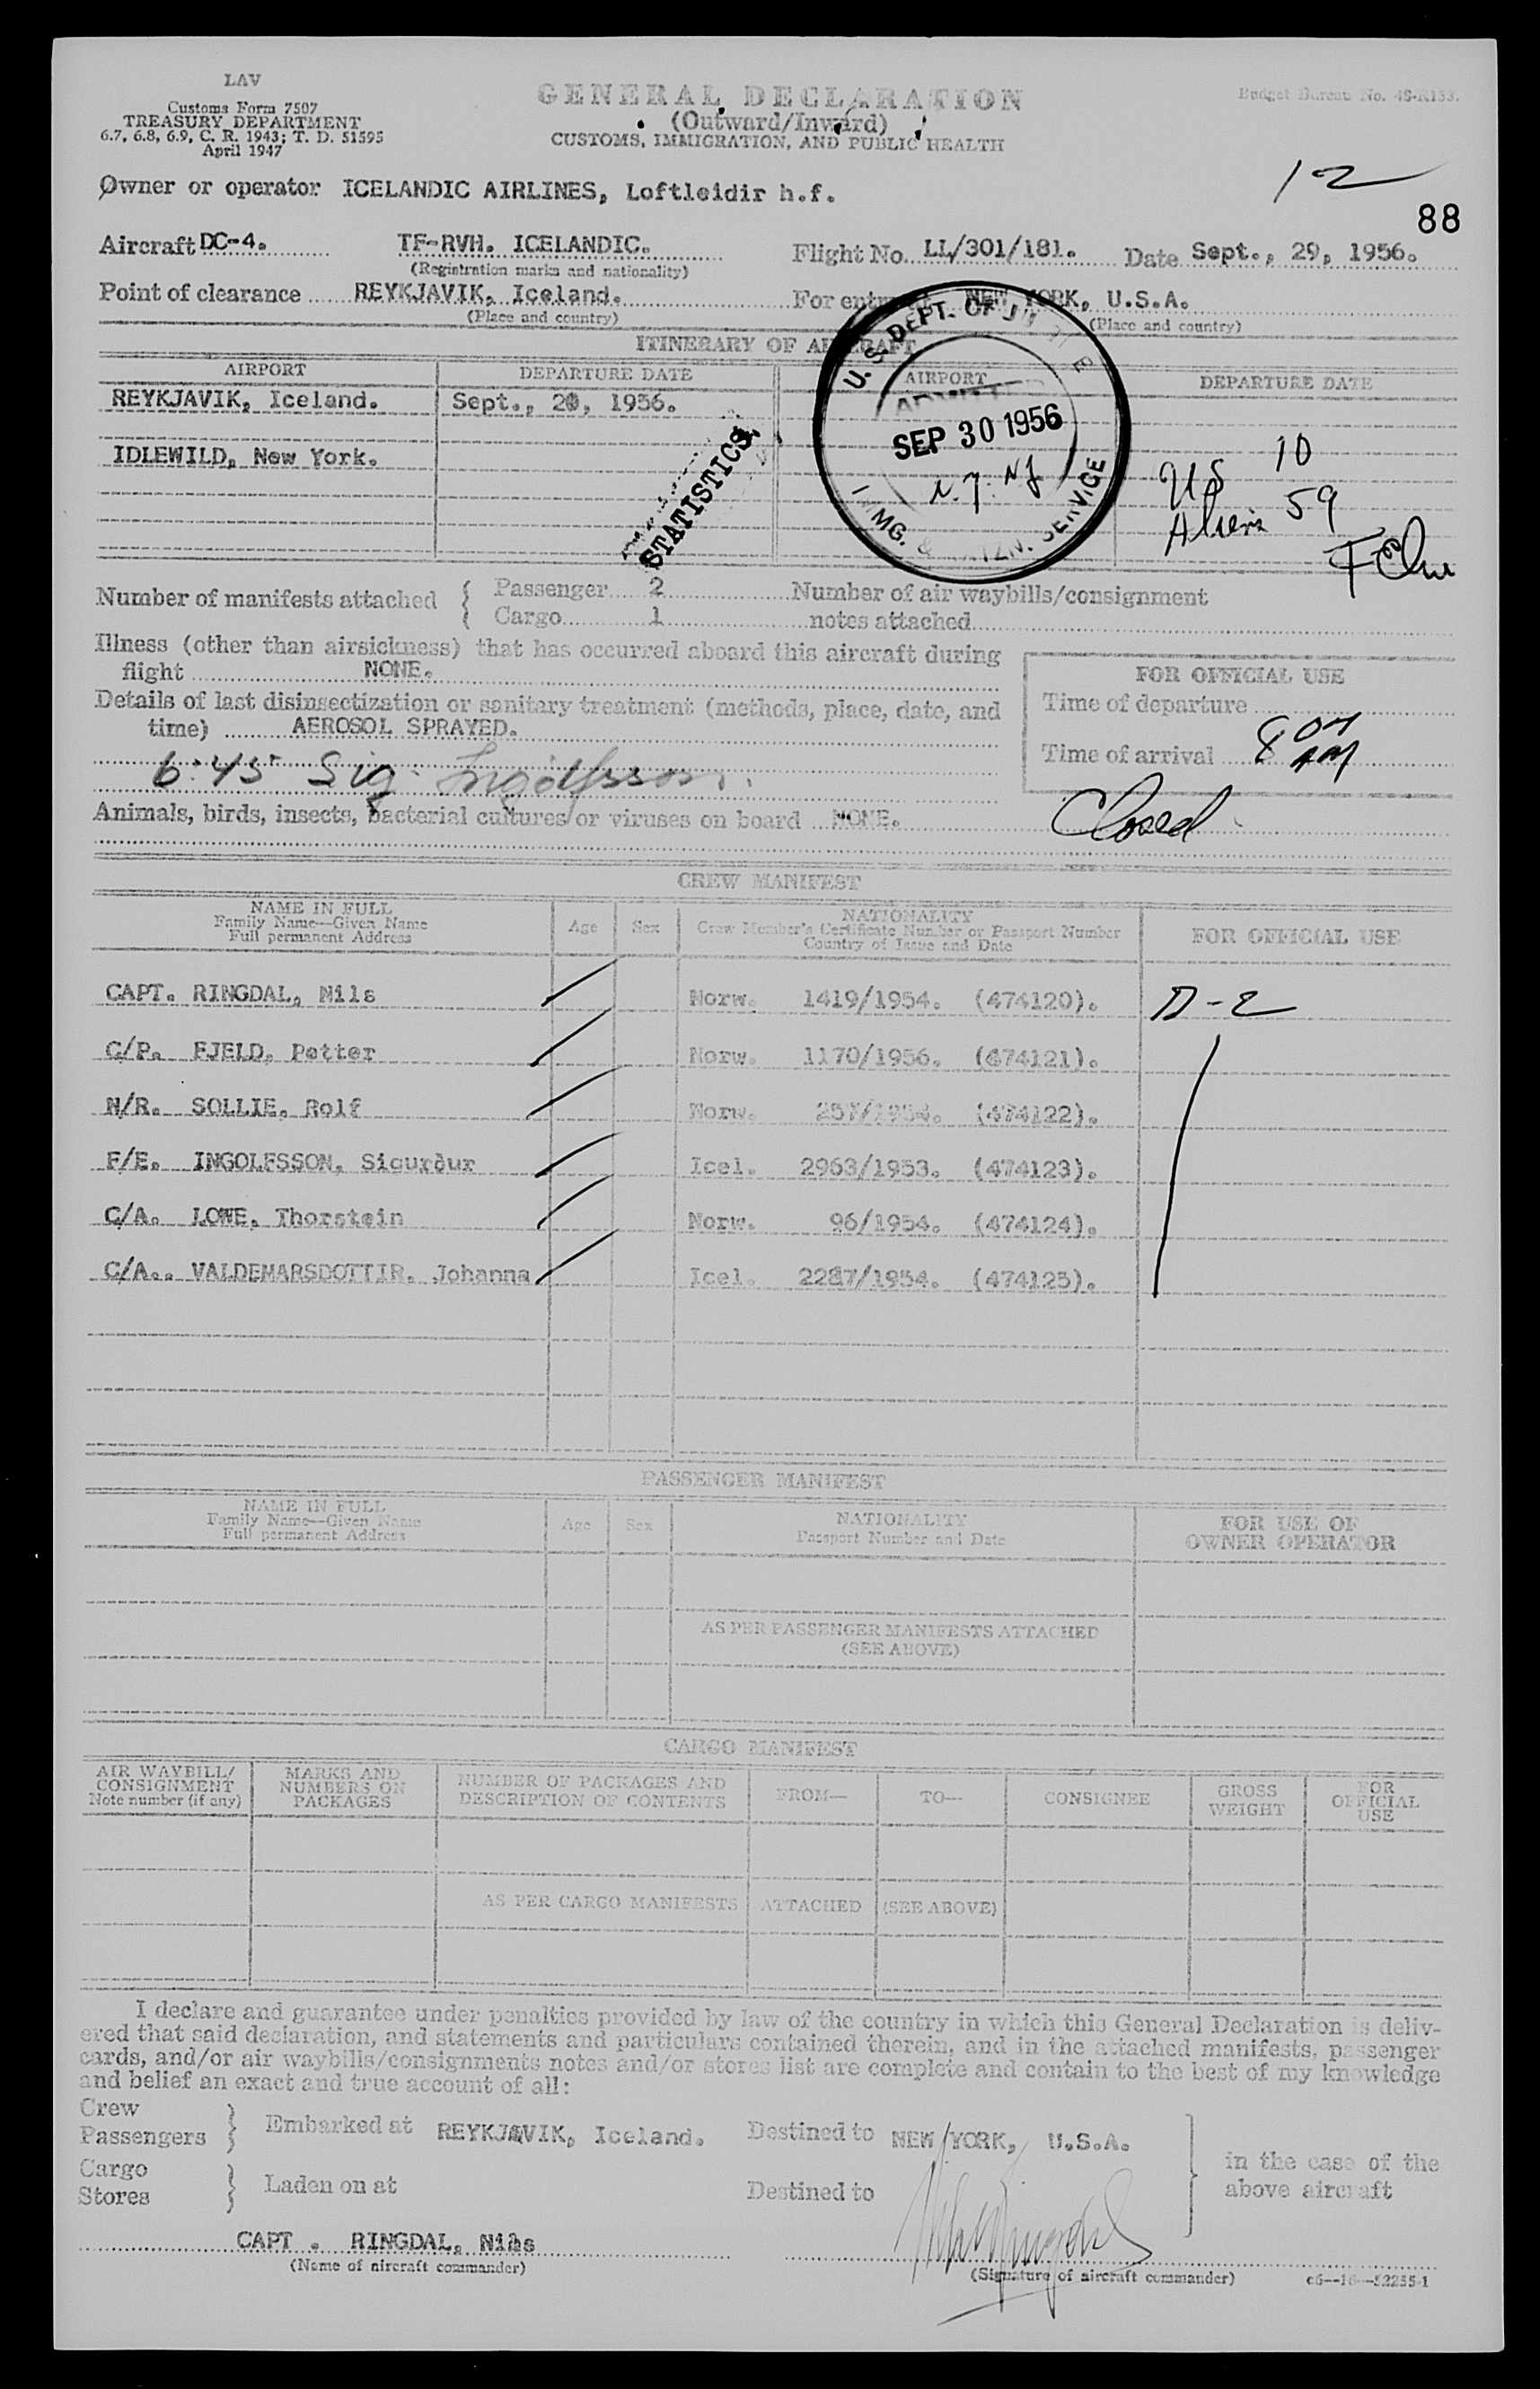 LAV
Customs Form 7507
TREASURY DEPARTMENT
6.7, 6.8, 6.9, C. R. 1943; T. D. 51595
April 1947
GENERAL DECLARATION
(Outward/Inward)
CUSTOMS, IMMIGRATION, AND PUBLIC HEALTH
Budget Bureau No. 48-R133.
12
88
Owner or operator ICELANDIC AIRLINES, Loftleidir h.f.
Aircraft DC-4. TF-RVH. ICELANDIC. Flight No. LL/301/181. Date Sept., 29, 1956.
(Registration marks and nationality)
Point of clearance REYKJAVIK, Iceland. For entry at NEW YORK, U.S.A.
(Place and country) (Place and country)
ITINERARY OF AIRCRAFT
AIRPORT DEPARTURE DATE AIRPORT DEPARTURE DATE
REYKJAVIK, Iceland. Sept., 29, 1956.
IDLEWILD, New York.
STATISTICS
U. S. DEPT. OF JUSTICE
ADMITTED
SEP 30 1956
N.Y. NY
IMMG. & NATZN. SERVICE
US 10
Aliens 59
Number of manifests attached { Passenger 2 Number of air waybills/consignment
{ Cargo 1 notes attached
Illness (other than airsickness) that has occurred aboard this aircraft during
flight NONE.
Details of last disinsectization or sanitary treatment (methods, place, date, and
time) AEROSOL SPRAYED.
6:45 Sig Ingolfsson.
Animals, birds, insects, bacterial cultures or viruses on board NONE.
FOR OFFICIAL USE
Time of departure
Time of arrival 8 07 AM
Closed
CREW MANIFEST
NAME IN FULL
Family Name—Given Name
Full permanent Address
Age Sex
NATIONALITY
Crew Member's Certificate Number or Passport Number
Country of Issue and Date
FOR OFFICIAL USE
CAPT. RINGDAL, Nils Norw. 1419/1954. (474120). D-2
C/P. FJELD, Petter Norw. 1170/1956. (474121).
N/R. SOLLIE, Rolf Norw. 257/1954. (474122).
F/E. INGOLFSSON, Sigurður Icel. 2963/1953. (474123).
C/A. LOWE, Thorstein Norw. 96/1954. (474124).
C/A.. VALDEMARSDOTTIR, Johanna Icel. 2287/1954. (474125).
PASSENGER MANIFEST
NAME IN FULL
Family Name—Given Name
Full permanent Address
Age Sex
NATIONALITY
Passport Number and Date
FOR USE OF
OWNER OPERATOR
AS PER PASSENGER MANIFESTS ATTACHED
(SEE ABOVE)
CARGO MANIFEST
AIR WAYBILL/
CONSIGNMENT
Note number (if any)
MARKS AND
NUMBERS ON
PACKAGES
NUMBER OF PACKAGES AND
DESCRIPTION OF CONTENTS
FROM—
TO—
CONSIGNEE
GROSS
WEIGHT
FOR
OFFICIAL
USE
AS PER CARGO MANIFESTS ATTACHED (SEE ABOVE)
I declare and guarantee under penalties provided by law of the country in which this General Declaration is deliv-
ered that said declaration, and statements and particulars contained therein, and in the attached manifests, passenger
cards, and/or air waybills/consignments notes and/or stores list are complete and contain to the best of my knowledge
and belief an exact and true account of all:
Crew
Passengers } Embarked at REYKJAVIK, Iceland. Destined to NEW YORK, U.S.A.
Cargo
Stores } Laden on at Destined to
in the case of the
above aircraft
CAPT . RINGDAL, Nils
(Name of aircraft commander)
Nils Ringdal
(Signature of aircraft commander) c6—16—52255-1